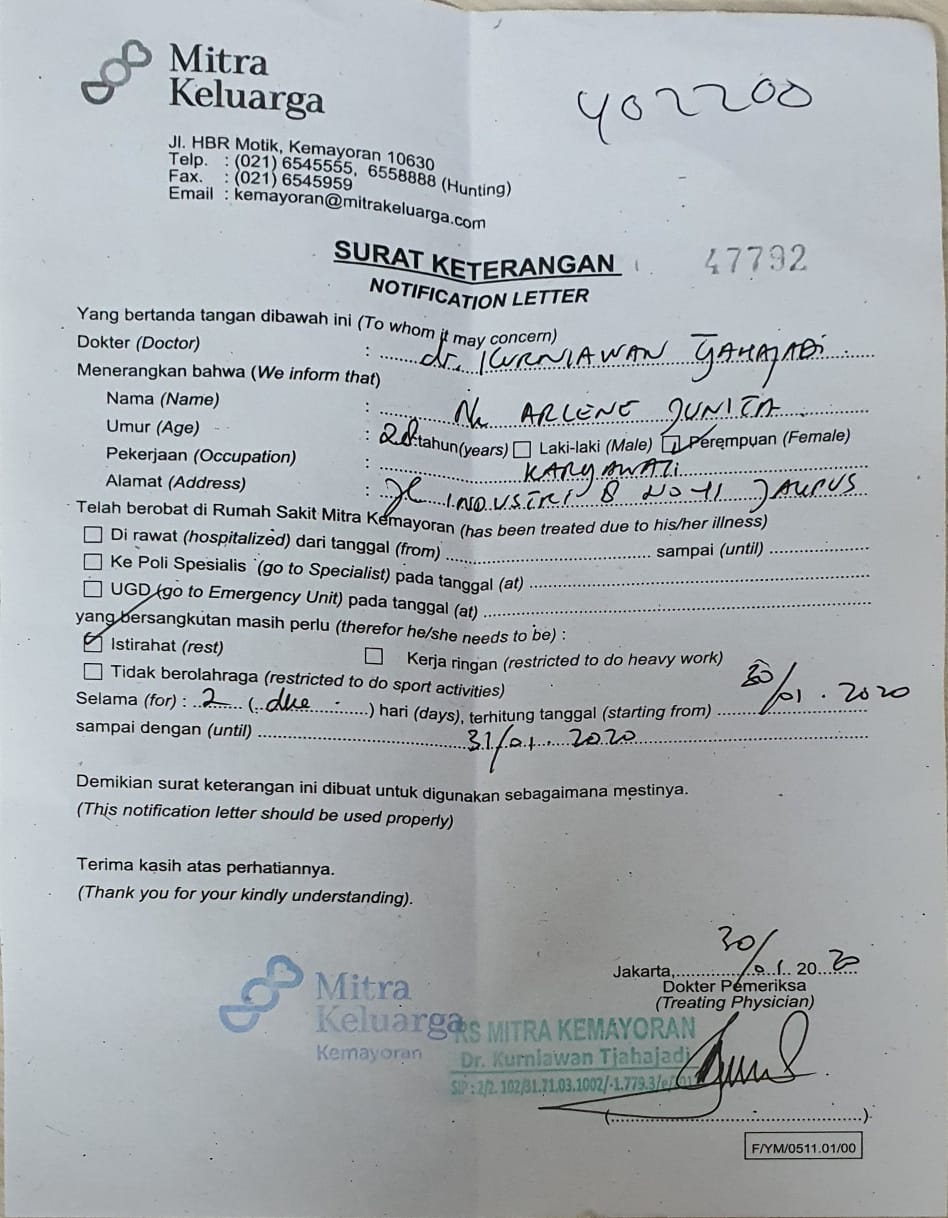 Mitra
Keluarga
402200
Jl. HBR Motik, Kemayoran 10630
Telp. : (021) 6545555, 6558888 (Hunting)
Fax. : (021) 6545959
Email : kemayoran@mitrakeluarga.com
SURAT KETERANGAN 47792
NOTIFICATION LETTER
Yang bertanda tangan dibawah ini (To whom it may concern)
Dokter (Doctor) : dr. KURNIAWAN TJAHAJADI
Menerangkan bahwa (We inform that)
Nama (Name) : ARLENE JUNITA
Umur (Age) : 28 tahun(years) Laki-laki (Male) Perempuan (Female)
Pekerjaan (Occupation) : KARYAWATI
Alamat (Address) : Jl INDUSTRI 8 NO 11
Telah berobat di Rumah Sakit Mitra Kemayoran (has been treated due to his/her illness)
Di rawat (hospitalized) dari tanggal (from) sampai (until)
Ke Poli Spesialis (go to Specialist) pada tanggal (at)
UGD (go to Emergency Unit) pada tanggal (at)
yang bersangkutan masih perlu (therefor he/she needs to be) :
Istirahat (rest) Kerja ringan (restricted to do heavy work)
Tidak berolahraga (restricted to do sport activities)
Selama (for) : 2 (due) hari (days), terhitung tanggal (starting from) 30/01.2020
sampai dengan (until) 31/01 2020
Demikian surat keterangan ini dibuat untuk digunakan sebagaimana mestinya.
(This notification letter should be used properly)
Terima kasih atas perhatiannya.
(Thank you for your kindly understanding).
Jakarta, 30/01 2020
Dokter Pemeriksa
(Treating Physician)
Mitra
Keluarga
Kemayoran
RS MITRA KEMAYORAN
Dr. Kurniawan Tjahajadi
SIP : 2/2. 102/31.71.03.1002/-1.779.3/e/
(..............................)
F/YM/0511.01/00